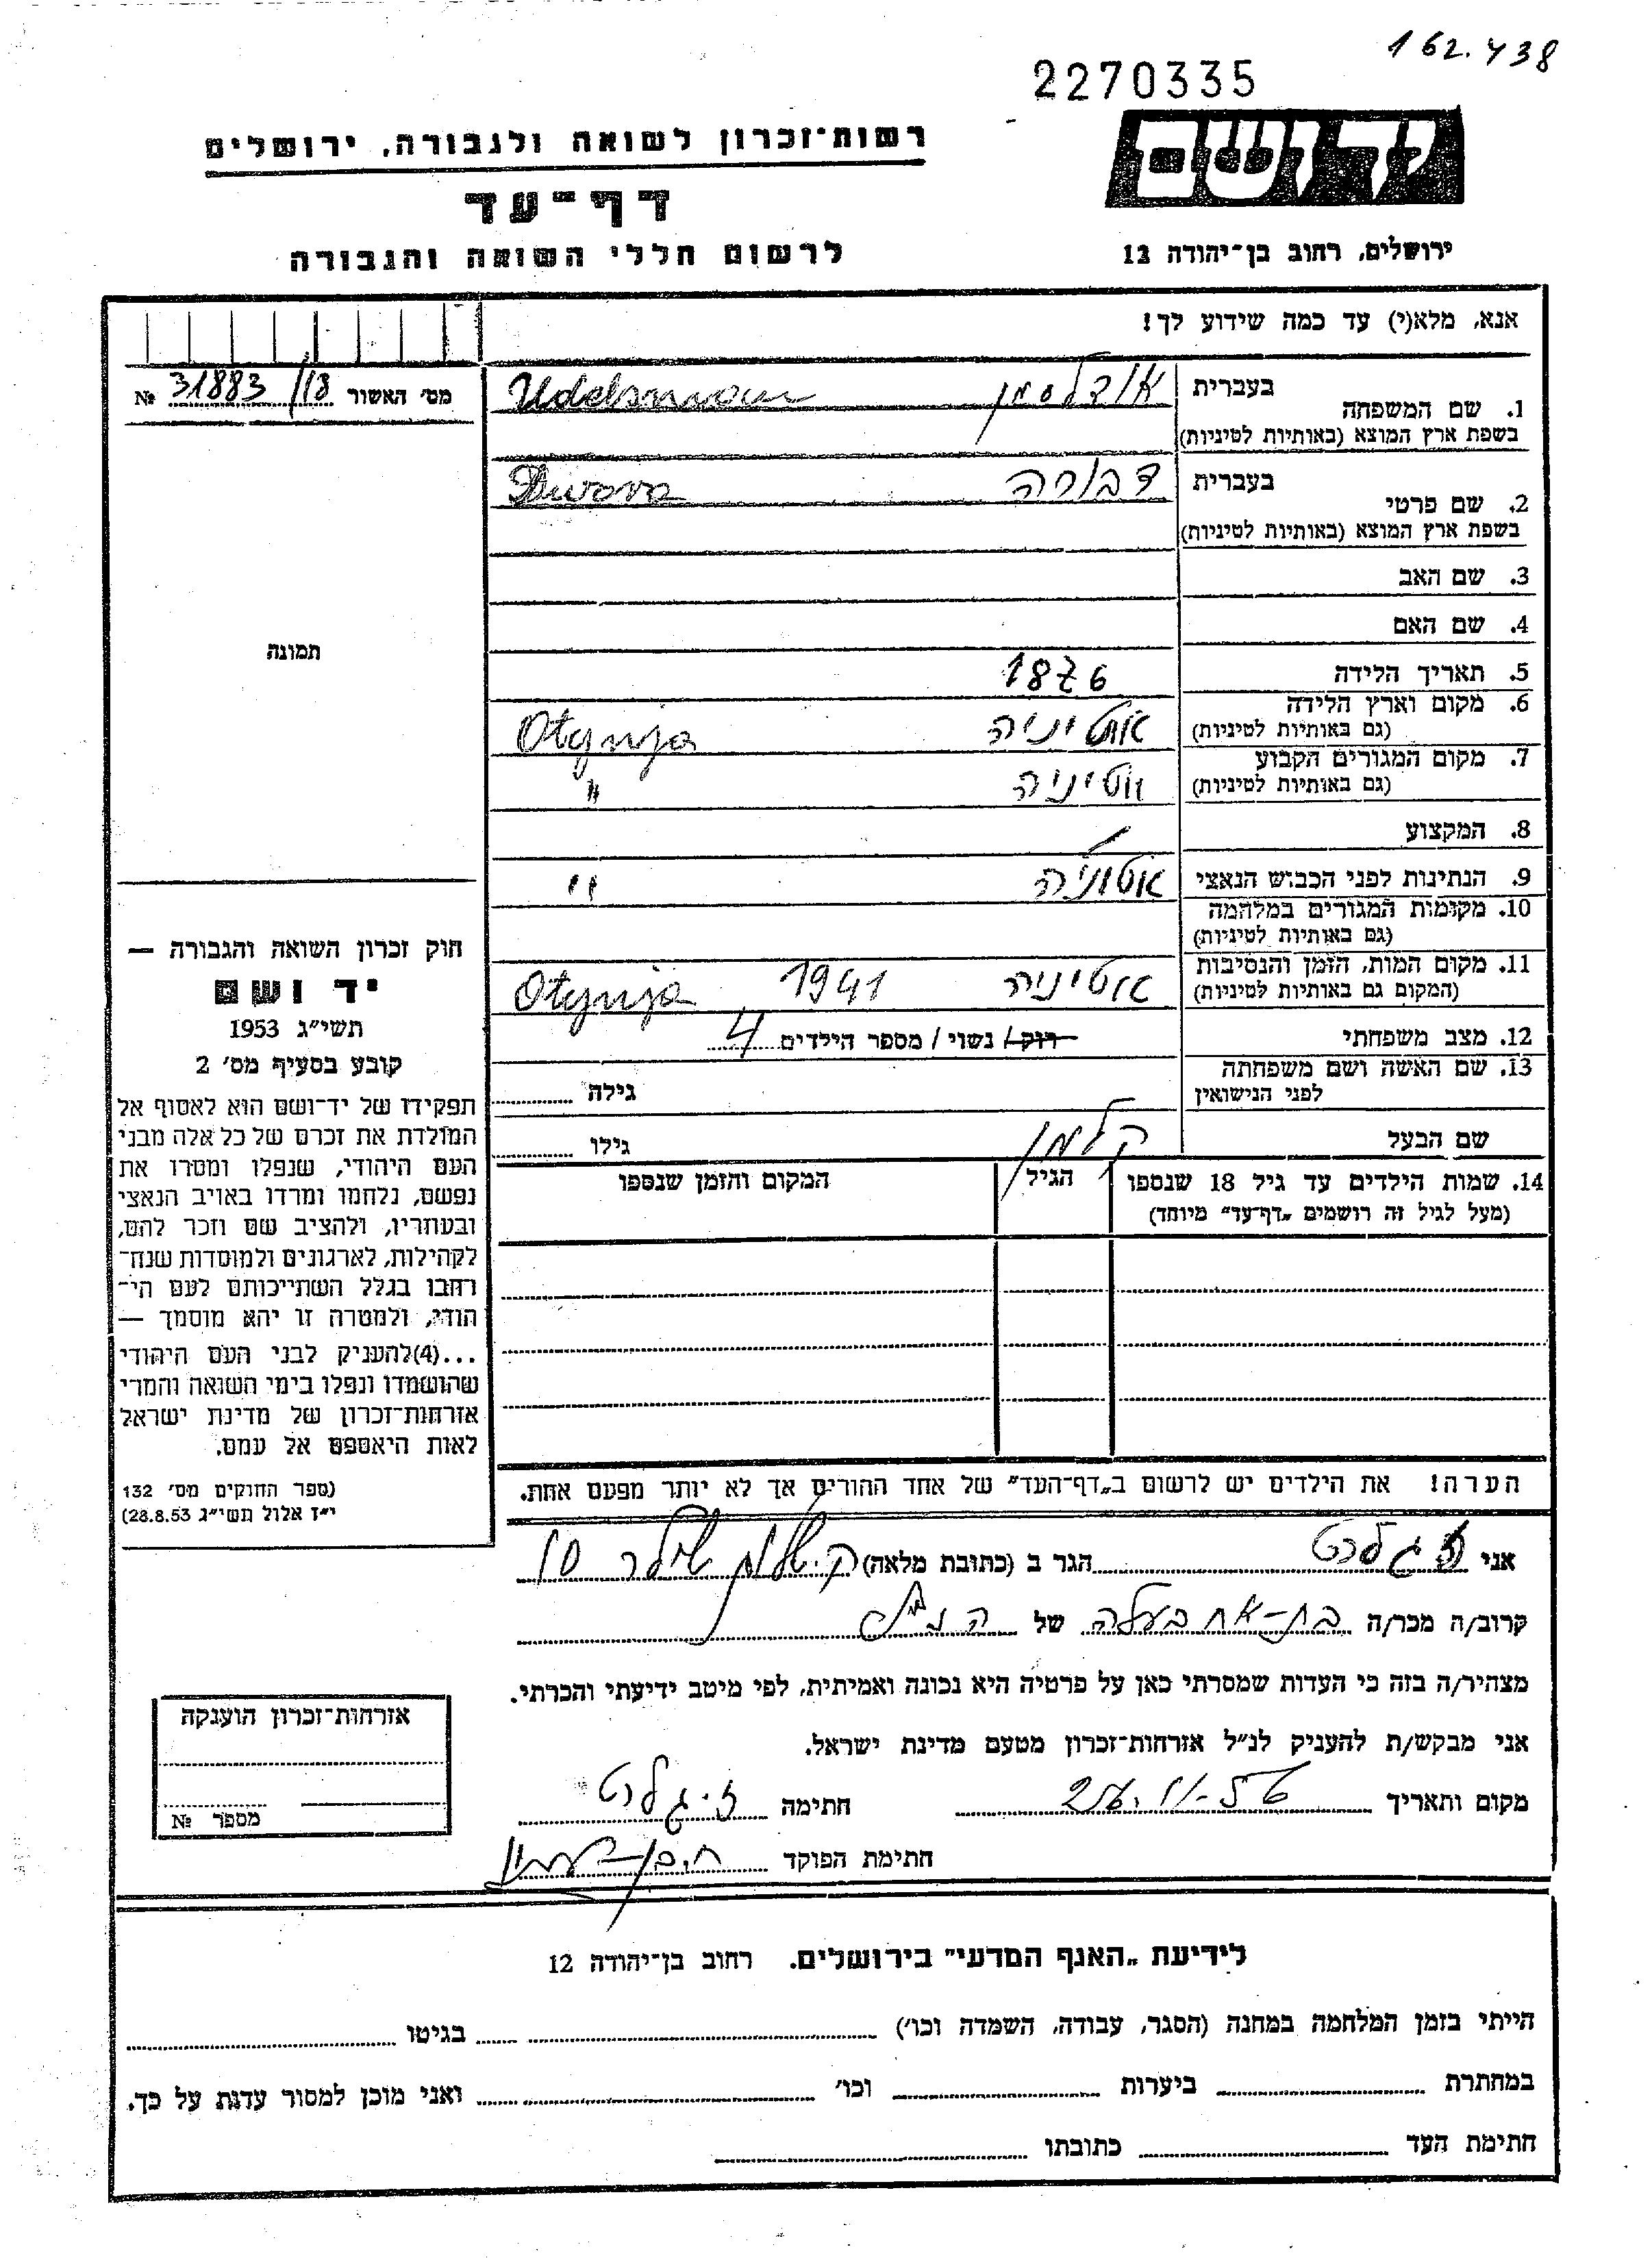 162.438
2270335
רשות־זכרון לשואה ולגבורה, ירושלים
יד ושם
דף־עד
לרשום חללי השואה והגבורה
ירושלים, רחוב בן־יהודה 12
אנא, מלא(י) עד כמה שידוע לך!
מס׳ האשור 31883/13 №
1. שם המשפחה
בעברית אודלסמן Udelsman
בשפת ארץ המוצא (באותיות לטיניות)
2. שם פרטי
בעברית דבורה Dwora
בשפת ארץ המוצא (באותיות לטיניות)
3. שם האב
4. שם האם
תמונה
5. תאריך הלידה 1876
6. מקום וארץ הלידה אוטיניה Otynja
(גם באותיות לטיניות)
7. מקום המגורים הקבוע אוטיניה "
(גם באותיות לטיניות)
8. המקצוע
9. הנתינות לפני הכבוש הנאצי "
10. מקומות המגורים במלחמה
(גם באותיות לטיניות)
11. מקום המות, הזמן והנסיבות אוטיניה 1941 Otynja
(המקום גם באותיות לטיניות)
12. מצב משפחתי רוק / נשוי / מספר הילדים 4
13. שם האשה ושם משפחתה גילה
לפני הנישואין
שם הבעל קלמן גילו
14. שמות הילדים עד גיל 18 שנספו הגיל המקום והזמן שנספו
(מעל לגיל זה רושמים „דף־עד״ מיוחד)
הערה! את הילדים יש לרשום ב„דף־העד״ של אחד ההורים אך לא יותר מפעם אחת.
חוק זכרון השואה והגבורה —
יד ושם
תשי״ג 1953
קובע בסעיף מס׳ 2
תפקידו של יד־ושם הוא לאסוף אל
המולדת את זכרם של כל אלה מבני
העם היהודי, שנפלו ומסרו את
נפשם, נלחמו ומרדו באויב הנאצי
ובעוזריו, ולהציב שם וזכר להם,
לקהילות, לארגונים ולמוסדות שנח־
רבו בגלל השתייכותם לעם הי־
הודי, ולמטרה זו יהא מוסמך —
...(4)להעניק לבני העם היהודי
שהושמדו ונפלו בימי השואה והמרי
אזרחות־זכרון של מדינת ישראל
לאות היאספם אל עמם.
(ספר החוקים מס׳ 132
י״ז אלול תשי״ג 28.8.53)
אני הגר ב (כתובת מלאה)
קרוב/ה מכר/ה בת-אח בעלה של הנ״ל
מצהיר/ה בזה כי העדות שמסרתי כאן על פרטיה היא נכונה ואמיתית, לפי מיטב ידיעתי והכרתי.
אני מבקש/ת להעניק לנ״ל אזרחות־זכרון מטעם מדינת ישראל.
מקום ותאריך חתימה
חתימת הפוקד
אזרחות־זכרון הוענקה
מספר №
לידיעת „האנף המדעי״ בירושלים. רחוב בן־יהודה 12
הייתי בזמן המלחמה במחנה (הסגר, עבודה, השמדה וכו׳) בגיטו
במחתרת ביערות וכו׳ ואני מוכן למסור עדות על כך.
חתימת העד כתובתו